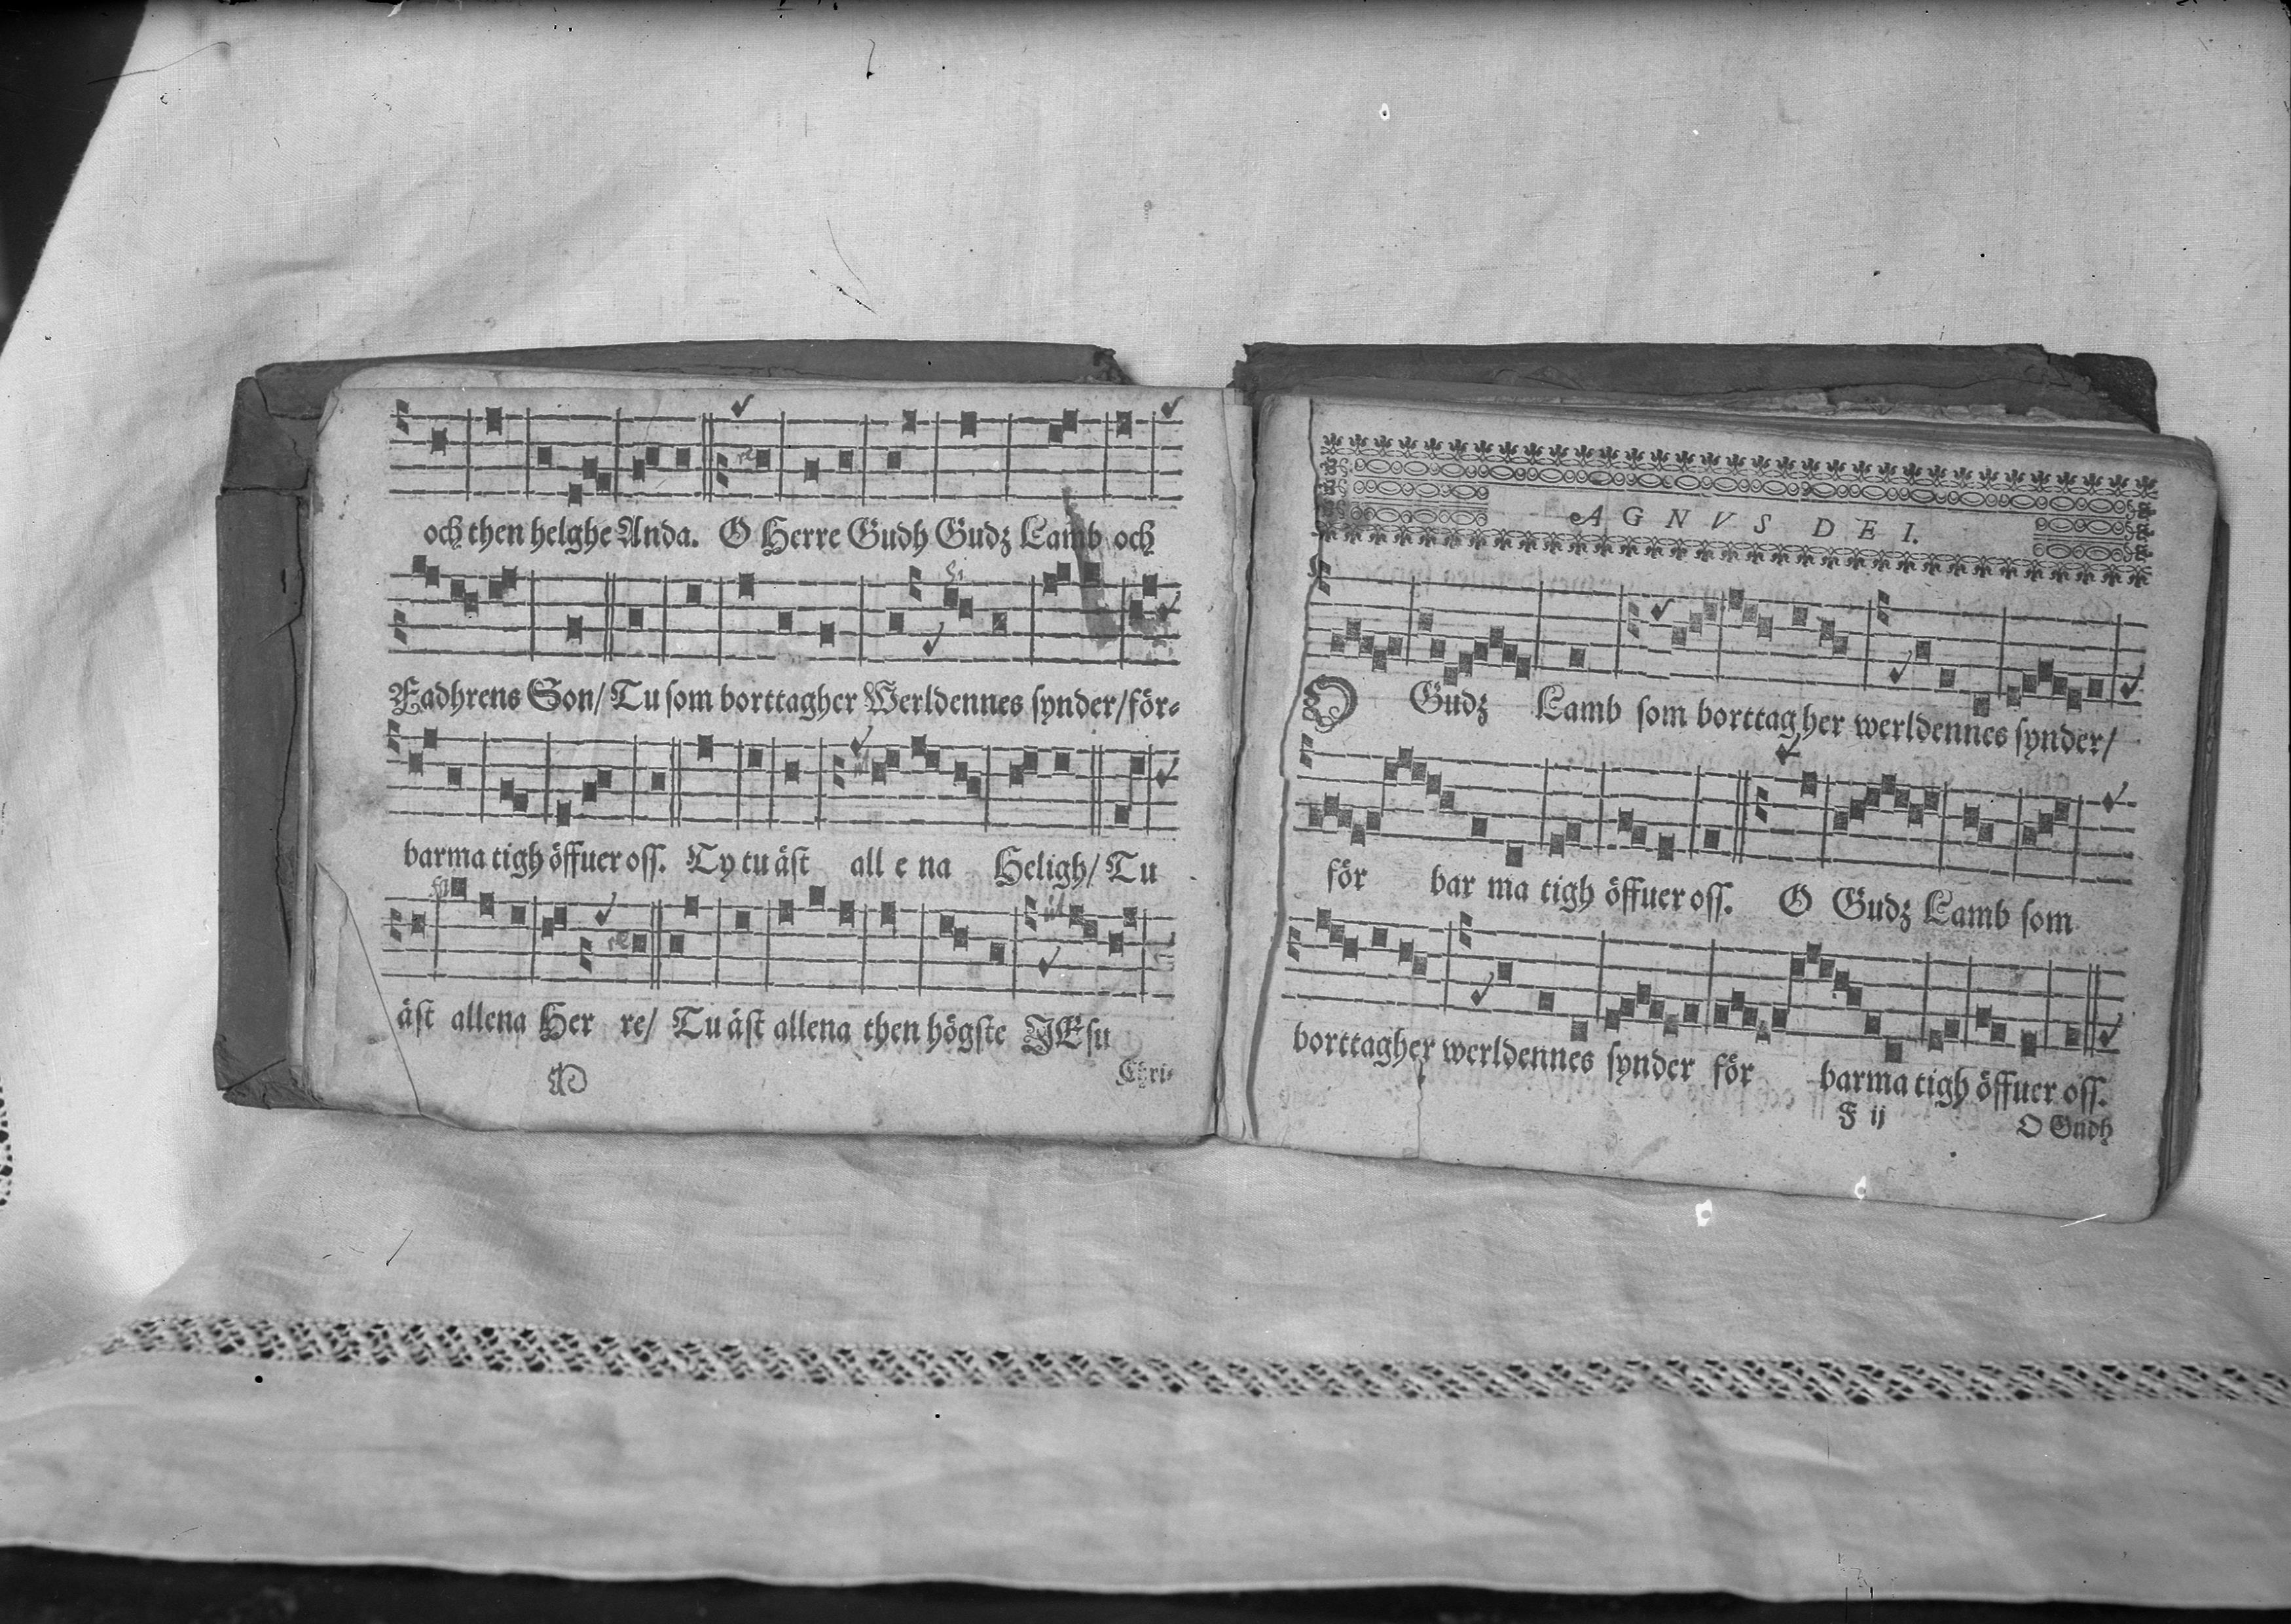 och then helghe Anda. O Herre Gudh Gudz Lamb och
Fadhrens Son/ Tu som borttagher Werldennes synder/ för⸗
barma tigh öffuer oss. Ty tu äst all e na Heligh/ Tu
äst allena Her re/ Tu äst allena then högste JEsu
Chri⸗
AGNVS DEI.
O Gudz Lamb som borttag her werldennes synder/
för bar ma tigh öffuer oss. O Gudz Lamb som
borttagher werldennes synder för barma tigh öffuer oss.
F ij
O Gudh